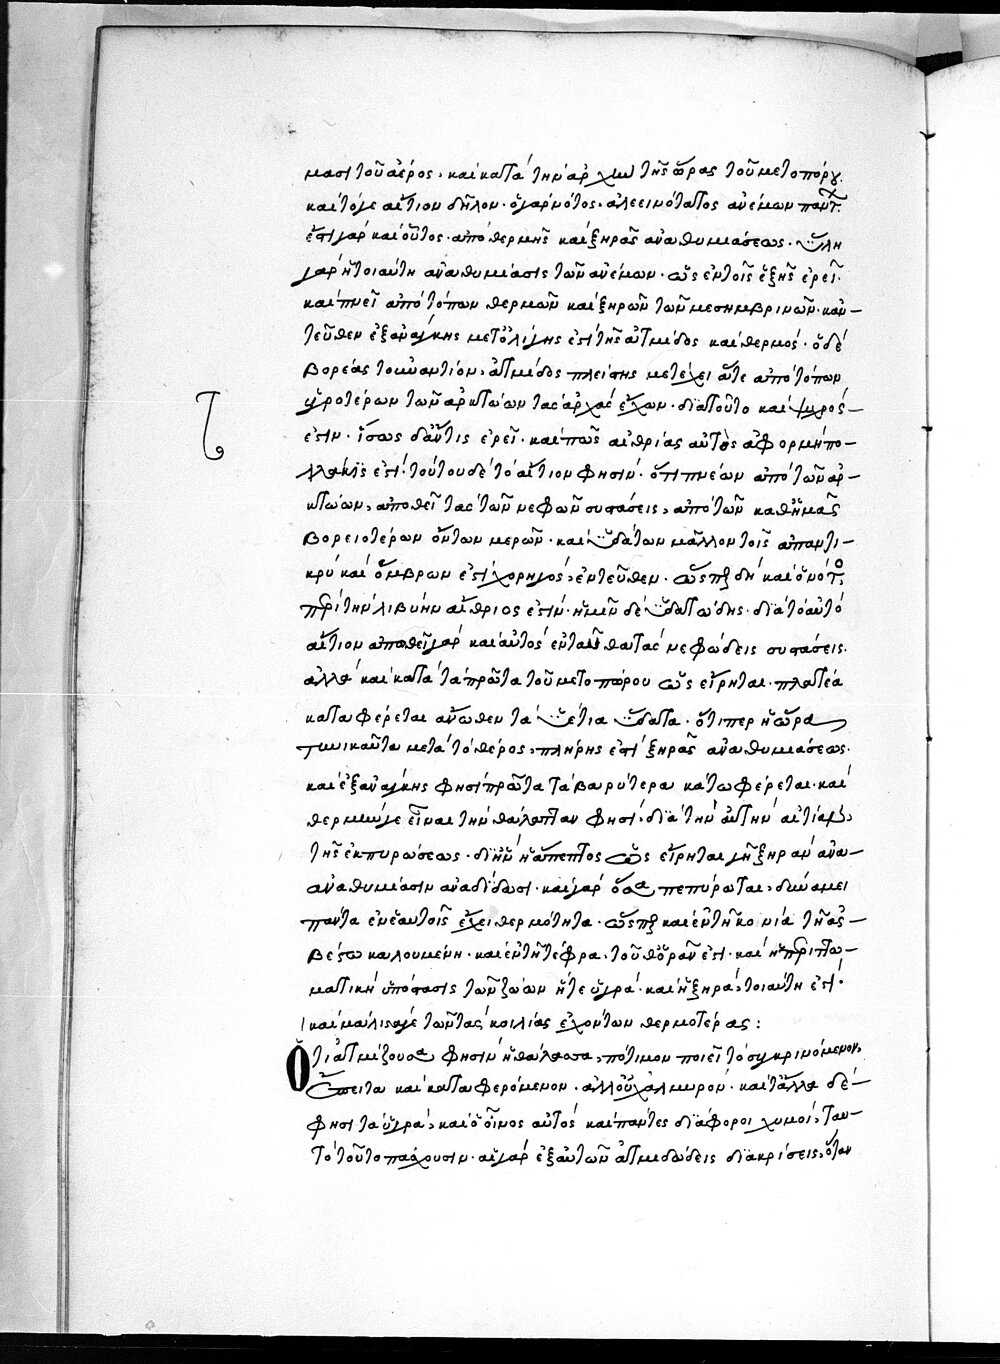 μασι τοῦ ἀέρος. καὶ κατὰ τὴν ἀρχὴν τῆς ὥρας τοῦ μετοπώρου.
καὶ τό γε αἴτιον δῆλον. ὁ γὰρ νότος. ἀλεεινότατος ἀνέμων πάντ
ἐστὶ γὰρ καὶ οὗτος. ἀπὸ θερμῆς καὶ ξηρᾶς ἀναθυμιάσεως. ὕλη
γὰρ ἡ τοιαύτη ἀναθυμίασις τῶν ἀνέμων. ὡς ἐν τοῖς ἑξῆς ἐρεῖ.
καὶ πνεῖ ἀπὸ τόπων θερμῶν καὶ ξηρῶν τῶν μεσημβρινῶν. κἀν–
τεῦθεν ἐξανάγκης μετ ὀλίγης ἐστὶ τῆς ἀτμίδος καὶ θερμός. ὁ δὲ
βορέας τοὐναντίον, ἀτμίδος πλείστης μετέχει ἅτε ἀπὸ τόπων
ὑγροτέρων τῶν ἀρκτώων τὰς ἀρχὰς ἔχων. διατοῦτο καὶ ψυχρός–
ἐστιν. ἴσως δ' ἄν τις ἐρεῖ. καὶ πῶς αἰθρίας αὐτὸς ἀφορμὴ πο–
λλάκις ἐστί. τούτου δὲ τὸ αἴτιον φησίν. ὅτι πνέων ἀπὸ τῶν ἀρ–
κτώων, ἀπωθεῖ τὰς τῶν νεφῶν συστάσεις, ἀπὸ τῶν καθ' ἡμᾶς
βορειοτέρων ὄντων μερῶν. καὶ ὑδάτων μᾶλλον τοῖς ἀπαντι–
κρὺ καὶ ὄμβρων ἐστὶ χορηγός, ἐντεῦθεν. ὥσπερ δὴ καὶ ὁ νότος,
περὶ τὴν λιβύην αἴθριος ἐστίν. ἡμῖν δὲ ὑδατώδης. διὰ τὸ αὐτὸ
αἴτιον ἀπωθεῖ γὰρ καὶ αὐτὸς ἐνταῦθα τὰς νεφώδεις συστάσεις.
ἀλλὰ καὶ κατὰ τὰ πρῶτα τοῦ μετοπώρου ὡς εἴρηται. πλατέα
καταφέρεται ἄνωθεν τὰ ὑέτια ὕδατα. ὅτι περ ἡ ὥρα
τηνικαῦτα μετὰ τὸ θέρος, πλήρης ἐστὶ ξηρᾶς ἀναθυμιάσεως.
καὶ ἐξανάγκης φησὶ πρῶτα τὰ βαρύτερα κάτω φέρεται. καὶ
θερμήν γε εἶναι τὴν θάλατταν φησί. διὰ τὴν αὐτὴν αἰτίαν,
τῆς ἐκπυρώσεως. δι' ἣν ἡ ἄπεπτος ὡς εἴρηται γῆ ξηρὰν ἀνα–
αναθυμίασιν ἀναδίδωσι. καὶ γὰρ ὅσα πεπύρωται, δυνάμει
πάντα ἐν ἑαυτοῖς ἔχει θερμότητα. ὥσπερ καὶ ἐν τῇ κονίᾳ τῇ ἀσ–
βέστω καλουμένη. καὶ ἐν τῇ τέφρα, τοῦθ' ὁρᾶν ἐστι. καὶ ἡ περιττω–
ματικὴ ὑπόστασις τῶν ζώων ἥ τε ὑγρά. καὶ ἡ ξηρά, τοιαύτη ἐστί.
καὶ μάλιστά γε τῶν τὰς κοιλίας ἐχόντων θερμοτέρας:
Ὅτι ἀτμίζουσα φησὶν ἡ θάλασσα, πότιμον ποιεῖ τὸ συγκρινόμενον,
ἔπειτα καὶ καταφερόμενον. ἀλλ' οὐχ ἁλμυρόν. καὶ τἄλλα δέ–
φησι τὰ ὑγρά, καὶ ὁ οἶνος αὐτὸς καὶ πάντες διάφοροι χυμοί, ταυ–
τὸ τοῦτο πάσχουσιν. αἱ γὰρ ἐξ αὐτῶν ἀτμιδώδεις διακρίσεις, ὅταν